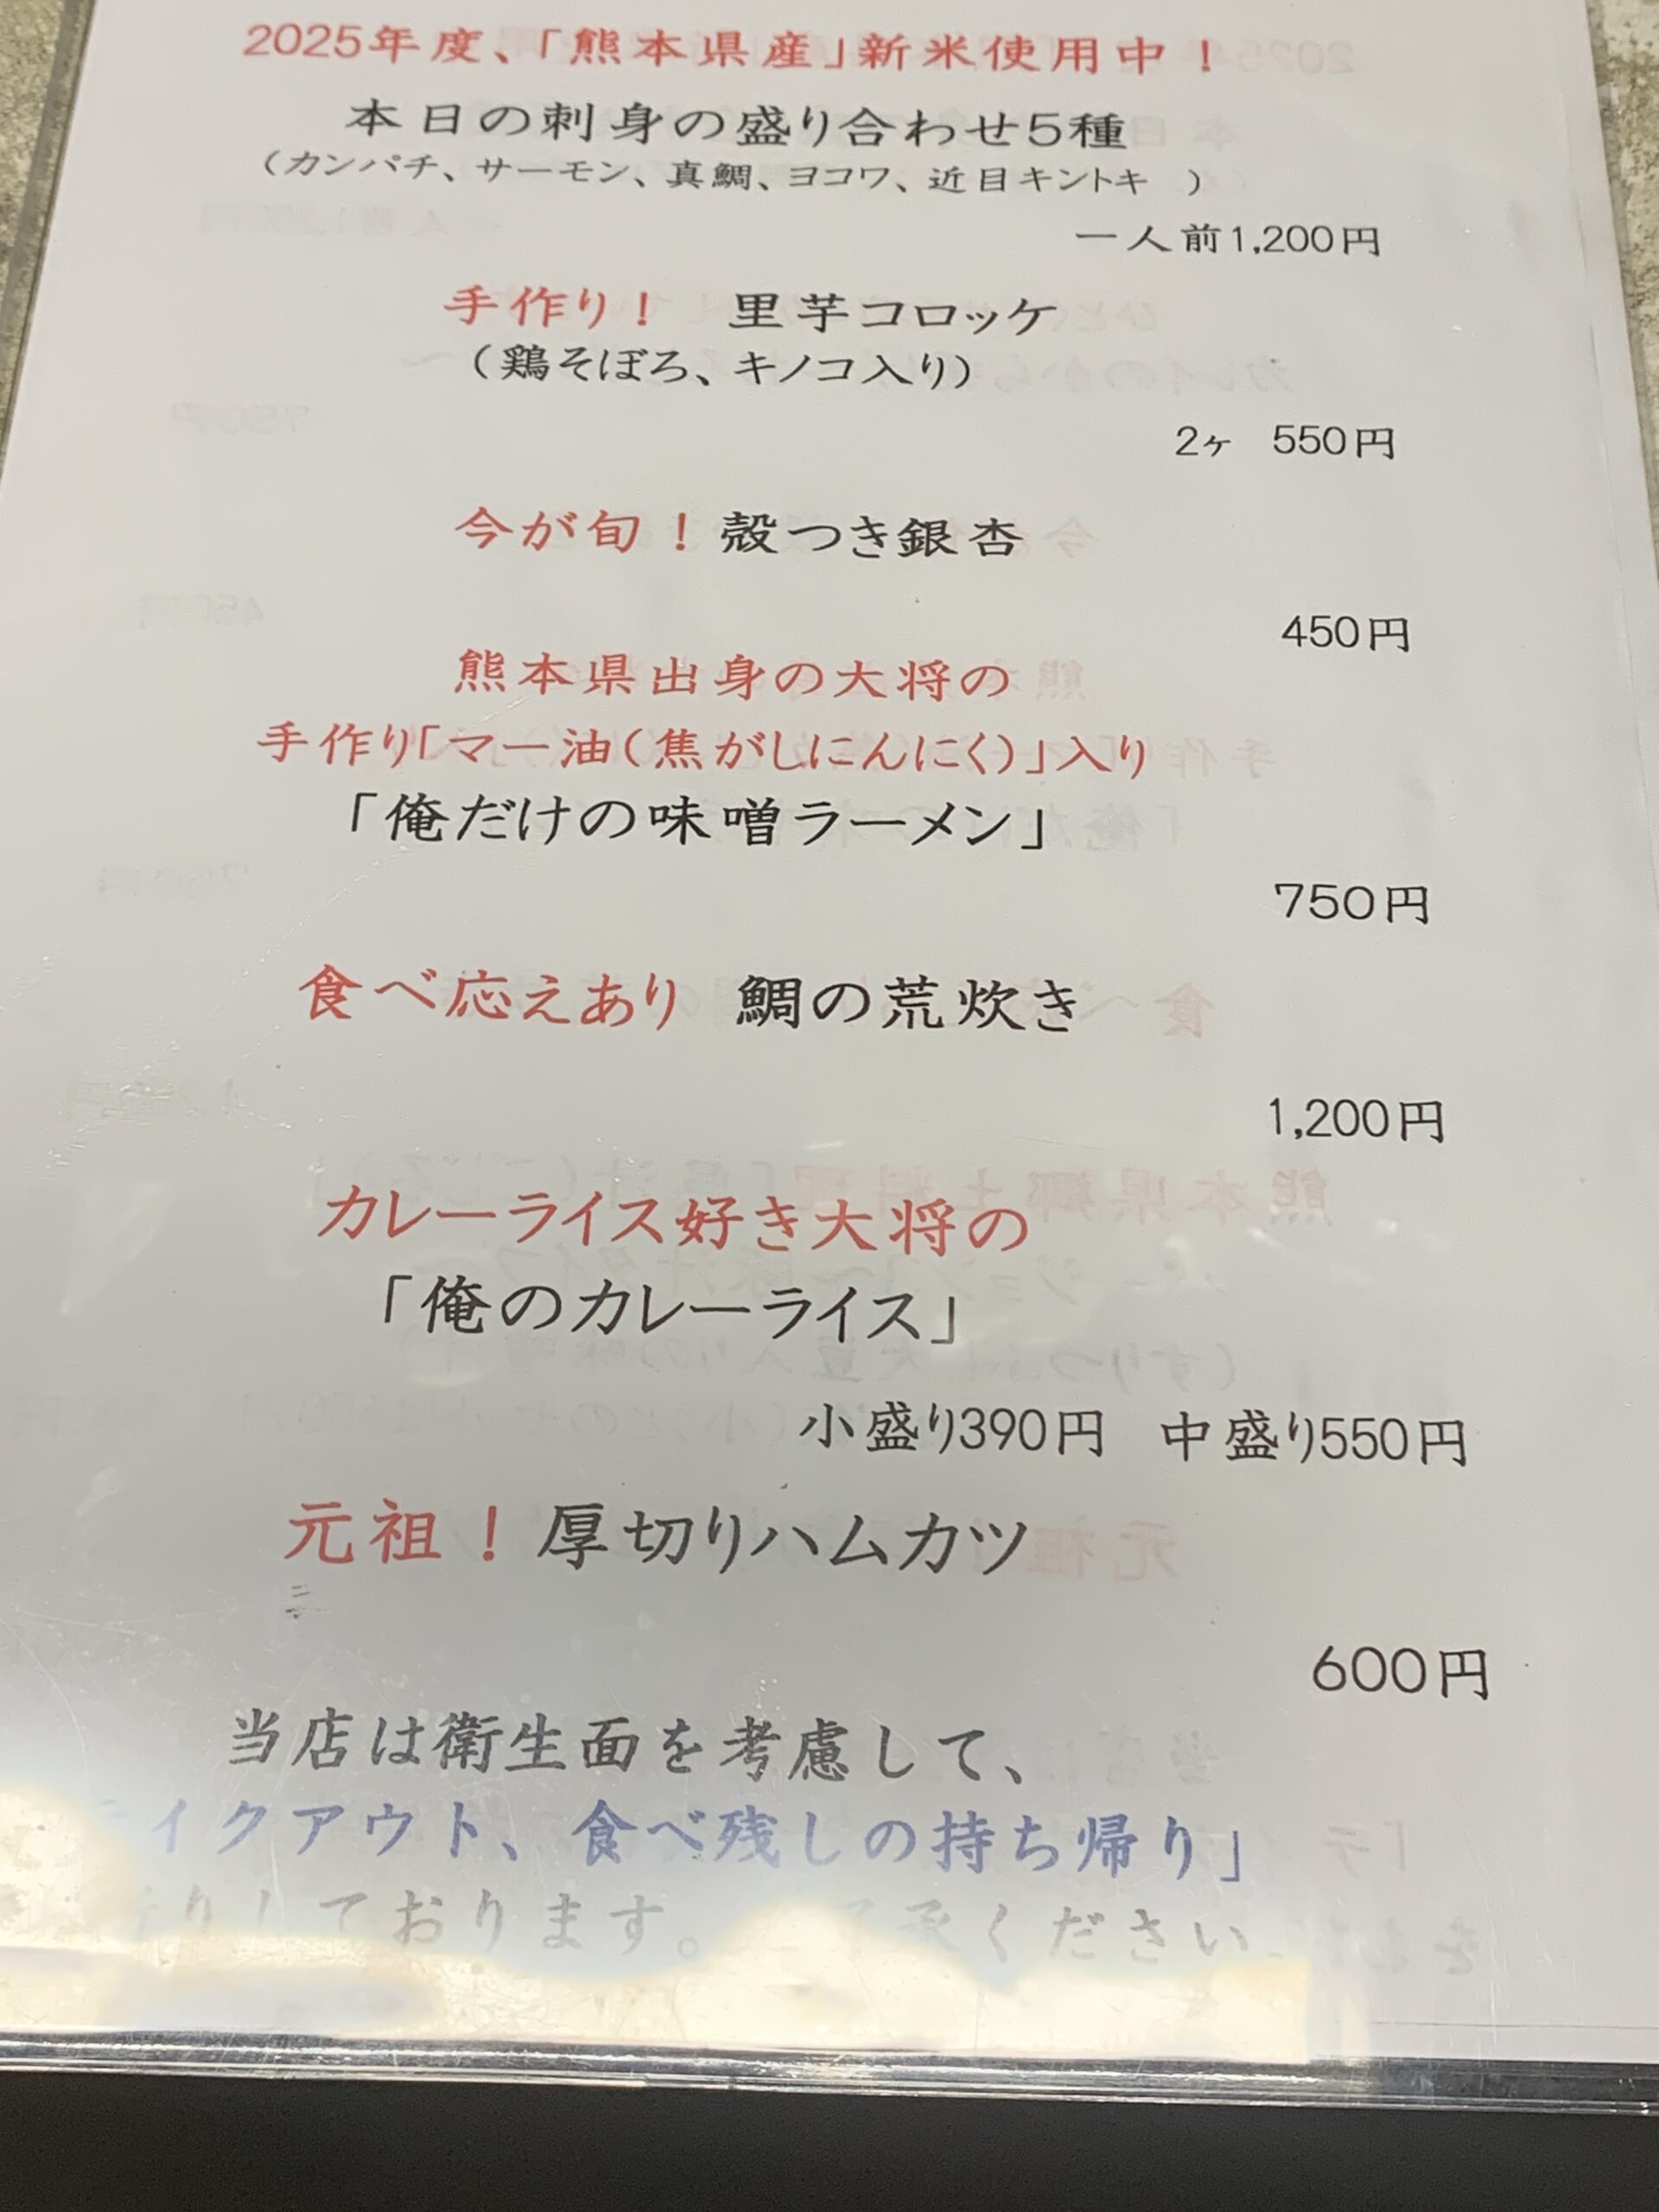 2025年度、「熊本県産」新米使用中！
本日の刺身の盛り合わせ5種
（カンパチ、サーモン、真鯛、ヨコワ、近目キントキ　）
一人前1,200円
手作り！　里芋コロッケ
（鶏そぼろ、キノコ入り）
2ヶ　550円
今が旬！殻つき銀杏
450円
熊本県出身の大将の
手作り「マー油（焦がしにんにく）」入り
「俺だけの味噌ラーメン」
750円
食べ応えあり　鯛の荒炊き
1,200円
カレーライス好き大将の
「俺のカレーライス」
小盛り390円　中盛り550円
元祖！厚切りハムカツ
600円
当店は衛生面を考慮して、
テイクアウト、食べ残しの持ち帰り」
りしております。　承ください